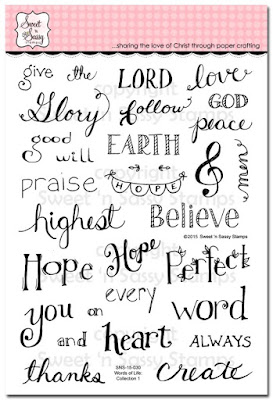 Sweet 'n Sassy Stamps
...sharing the love of Christ through paper crafting
give the LORD love
Glory follow GOD
good will EARTH peace
praise HOPE men
highest Believe
©2015 Sweet 'n Sassy Stamps
Hope Hope Perfect
every
you on word
and heart ALWAYS
thanks Create
SNS-15-030
Words of Life:
Collection 1
copyright
Sweet 'n Sassy Stamps
copyright
Sweet 'n Sassy Stamps
copyright
Sweet 'n Sassy Stamps